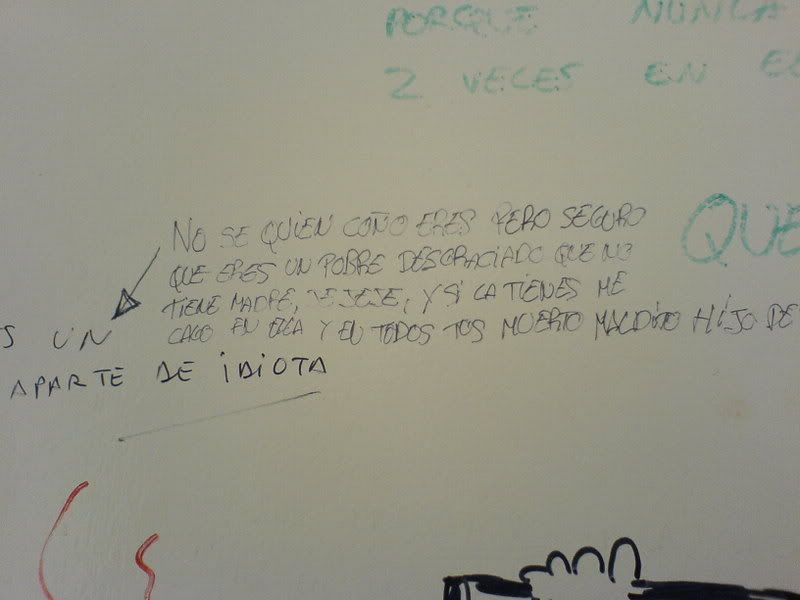 PORQUE NUNCA
2 VECES EN
QUE
NO SE QUIEN COÑO ERES PERO SEGURO
QUE ERES UN POBRE DESGRACIADO QUE NO
TIENE MADRE, JEJEJE, Y SI LA TIENES ME
CAGO EN ELLA Y EN TODOS TUS MUERTO MALDITO HIJO DE
S UN
APARTE DE IDIOTA